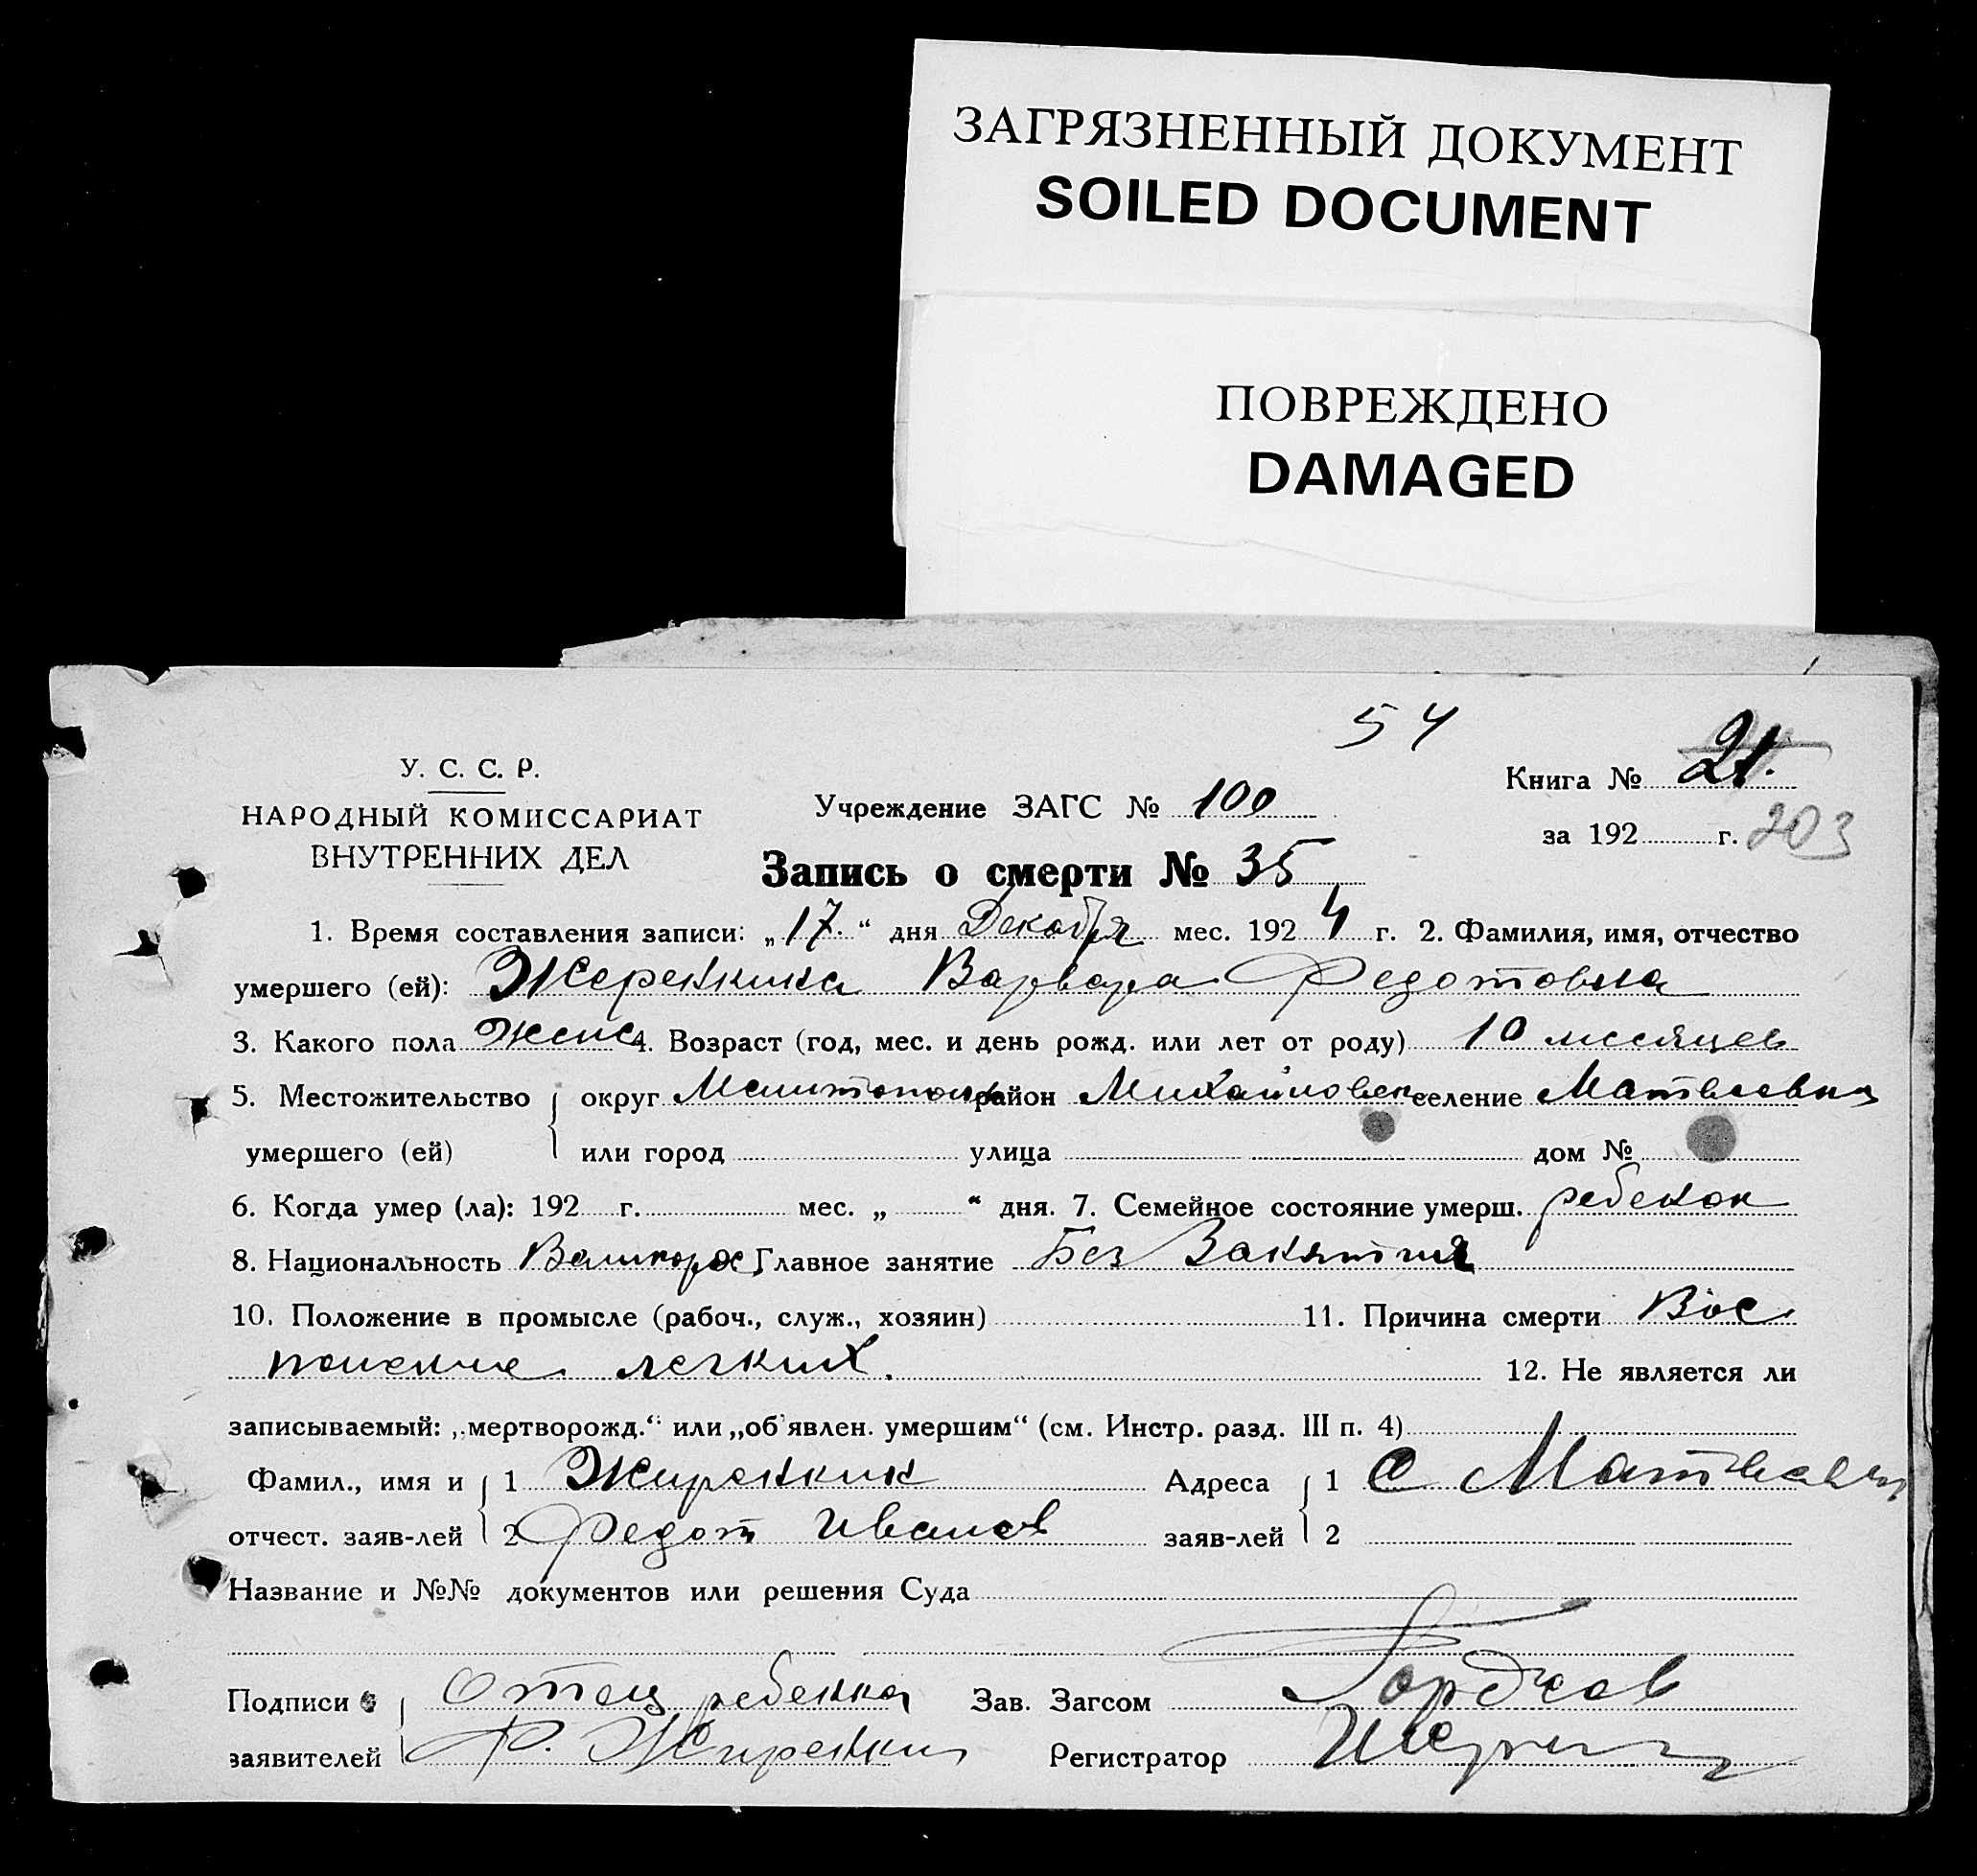 ЗАГРЯЗНЕННЫЙ ДОКУМЕНТ
SOILED DOCUMENT
ПОВРЕЖДЕНО
DAMAGED
54
У. С. С. Р.
НАРОДНЫЙ КОМИССАРИАТ
ВНУТРЕННИХ ДЕЛ
Учреждение ЗАГС № 100
Книга № 21.
за 192 г. 203
Запись о смерти № 35
1. Время составления записи: „17.“ дня Декабря мес. 1924 г. 2. Фамилия, имя, отчество
умершего (ей): Жеренкина Варвара Федотовна
3. Какого пола Женс 4. Возраст (год, мес. и день рожд. или лет от роду) 10 месяцев
5. Местожительство округ Мелитополь район Михайловск селение Матвеевка
умершего (ей) или город улица дом №
6. Когда умер (ла): 192 г. мес. „ “ дня. 7. Семейное состояние умерш. ребенок
8. Национальность Великорос Главное занятие Без Занятия
10. Положение в промысле (рабоч., служ., хозяин) 11. Причина смерти Вос
поление легких. 12. Не является ли
записываемый: „мертворожд.“ или „об'явлен. умершим“ (см. Инстр. разд. III п. 4)
Фамил., имя и 1 Жиренкин Адреса 1 С Матвеевка
отчест. заяв-лей 2 Федот Иванов заяв-лей 2
Название и №№ документов или решения Суда
Подписи Отец ребенка Зав. Загсом
заявителей Ф. Жиренкин Регистратор